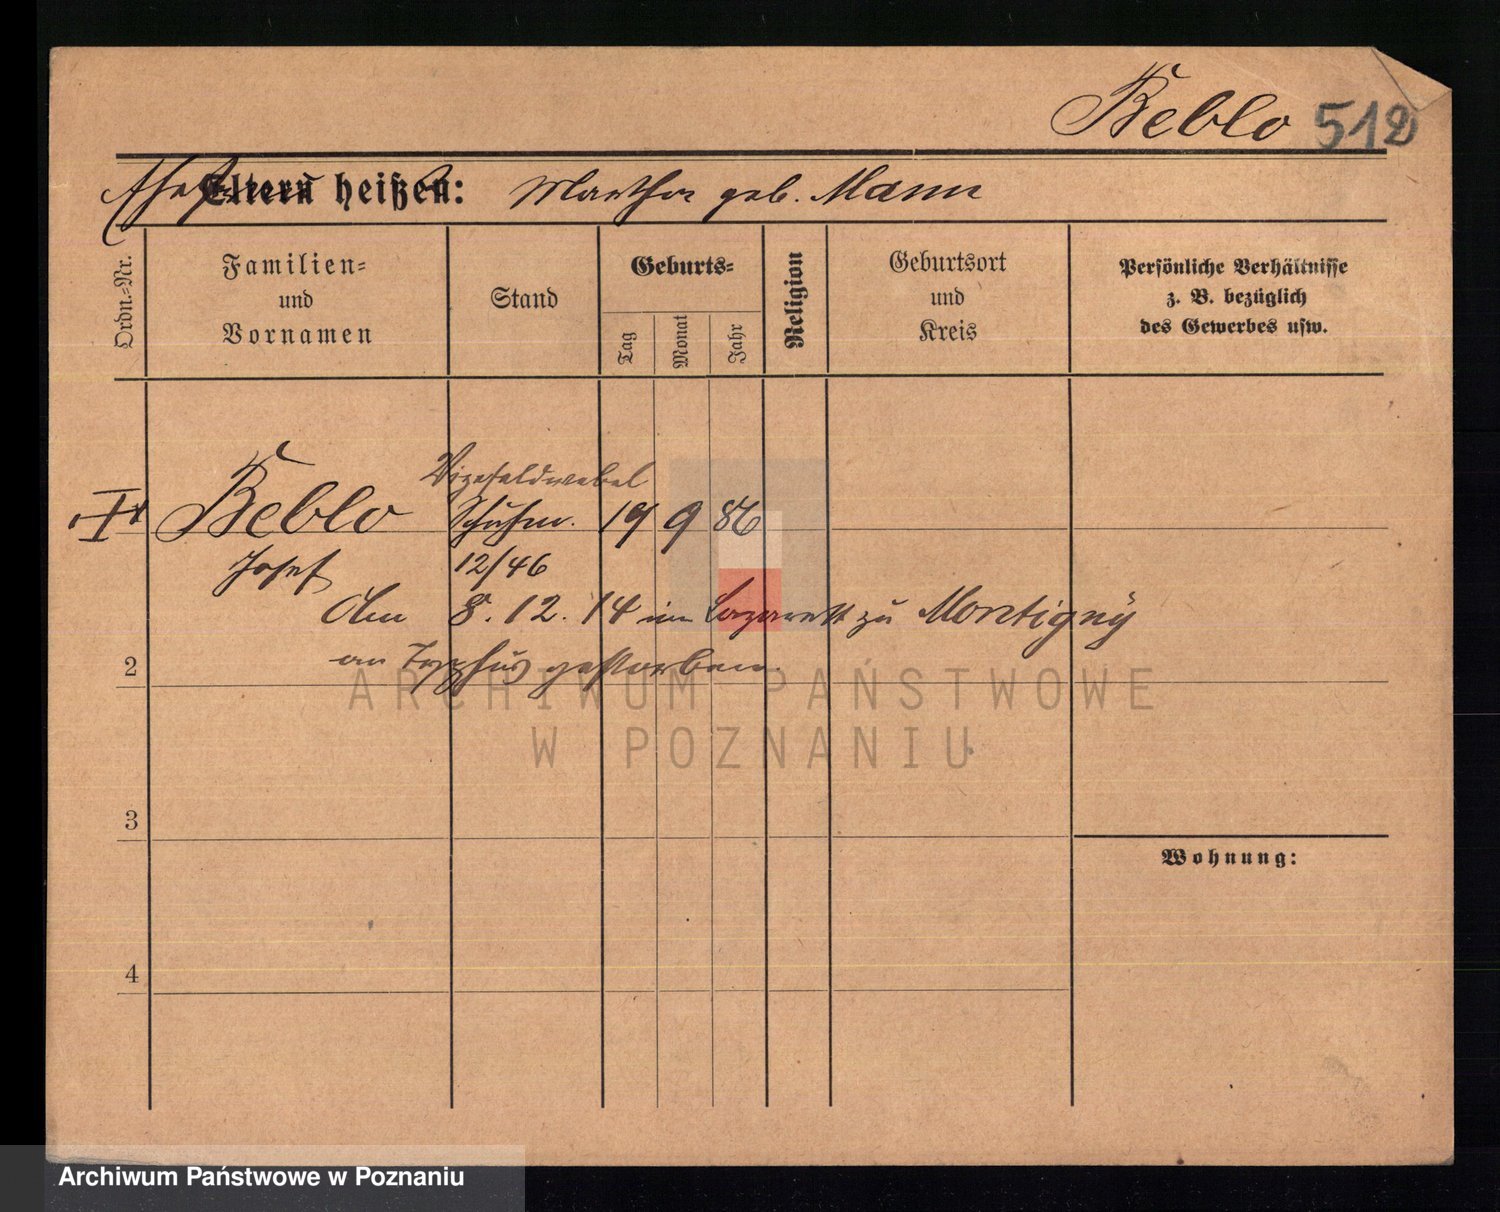 Beblo 512
Ehefrau
Eltern heißen: Martha geb. Mann
Ordn.-Nr.
Familien-
und
Vornamen
Stand
Geburts-
Tag
Monat
Jahr
Religion
Geburtsort
und
Kreis
Persönliche Verhältnisse
z. B. bezüglich
des Gewerbes usw.
Vizefeldwebel
Beblo Schuhm. 19 9 86
Josef 12/46
Am 8. 12. 14 im Lazarett zu Montigny
2 an Typhus gestorben.
ARCHIWUM PAŃSTWOWE
W POZNANIU
3
Wohnung:
4
Archiwum Państwowe w Poznaniu